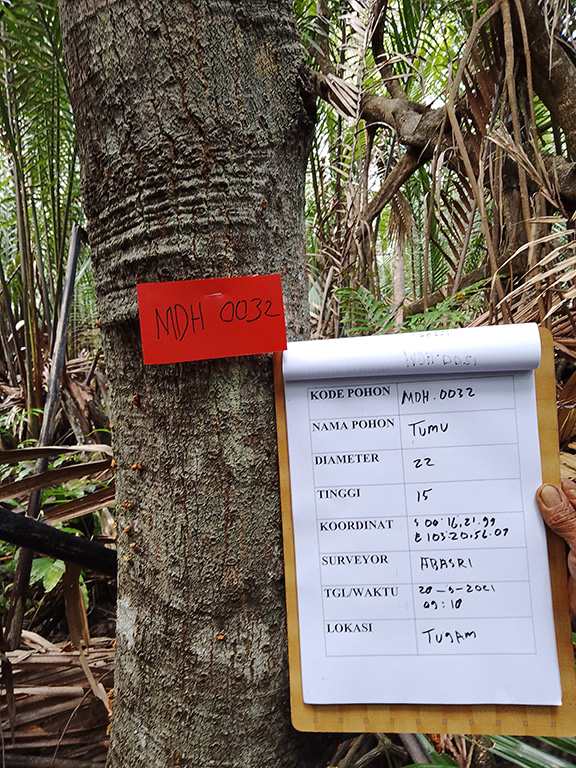 MDH 0032
KODE POHON MDH.0032
NAMA POHON TUMU
DIAMETER 22
TINGGI 15
KOORDINAT S 00°16,21.99
E 103°20,56.07
SURVEYOR ABASRI
TGL/WAKTU
09:10
LOKASI